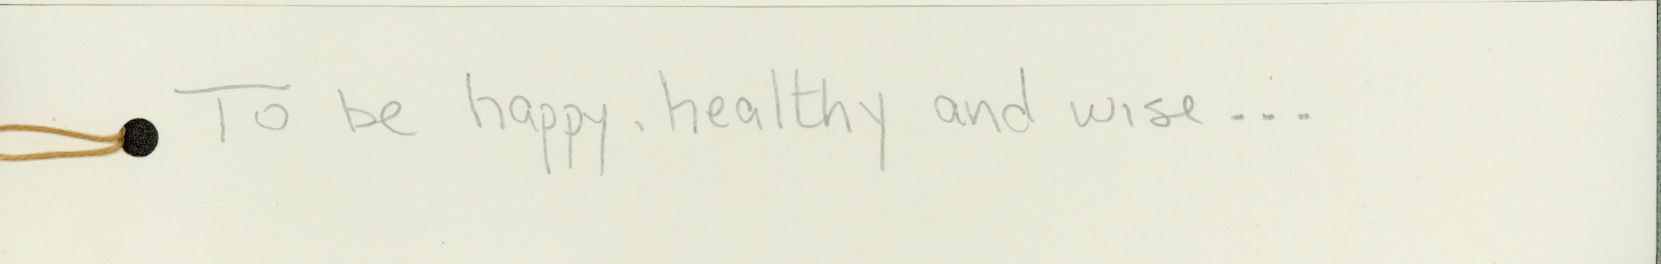 To be happy, healthy and wise....